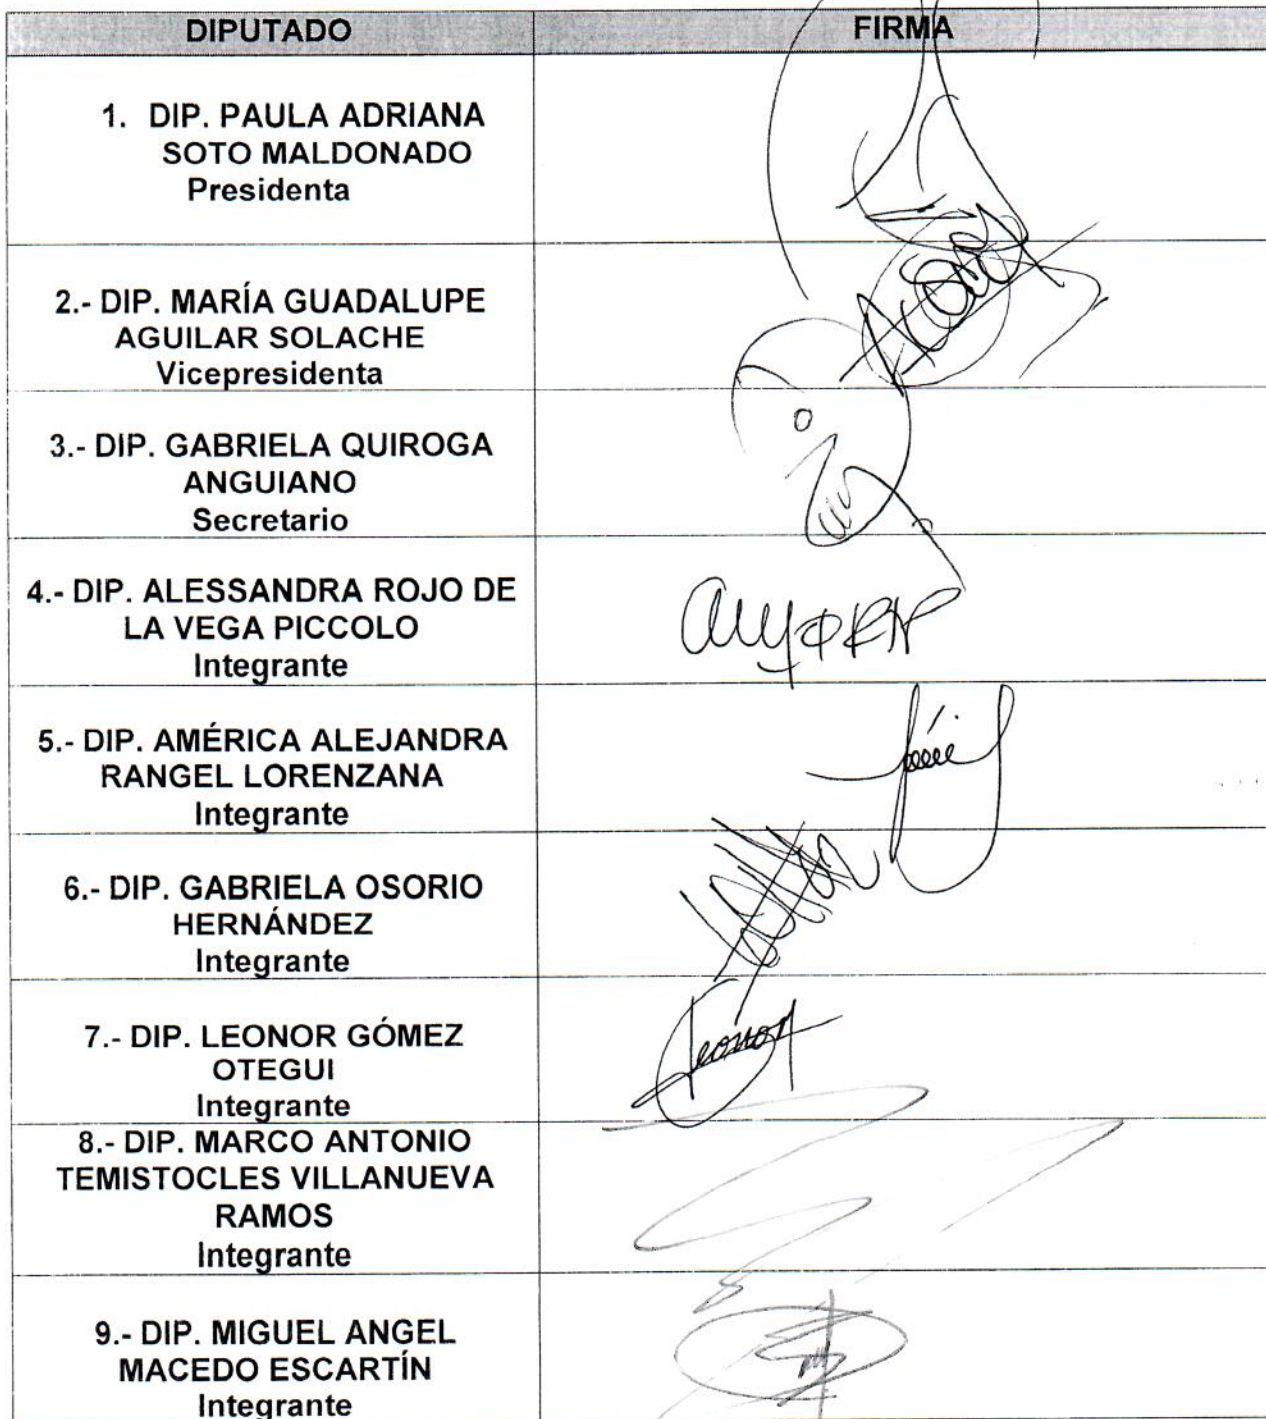 DIPUTADO FIRMA
1. DIP. PAULA ADRIANA
SOTO MALDONADO
Presidenta
2.- DIP. MARÍA GUADALUPE
AGUILAR SOLACHE
Vicepresidenta
3.- DIP. GABRIELA QUIROGA
ANGUIANO
Secretario
4.- DIP. ALESSANDRA ROJO DE
LA VEGA PICCOLO
Integrante
5.- DIP. AMÉRICA ALEJANDRA
RANGEL LORENZANA
Integrante
6.- DIP. GABRIELA OSORIO
HERNÁNDEZ
Integrante
7.- DIP. LEONOR GÓMEZ
OTEGUI
Integrante
Leonor
8.- DIP. MARCO ANTONIO
TEMISTOCLES VILLANUEVA
RAMOS
Integrante
9.- DIP. MIGUEL ANGEL
MACEDO ESCARTÍN
Integrante